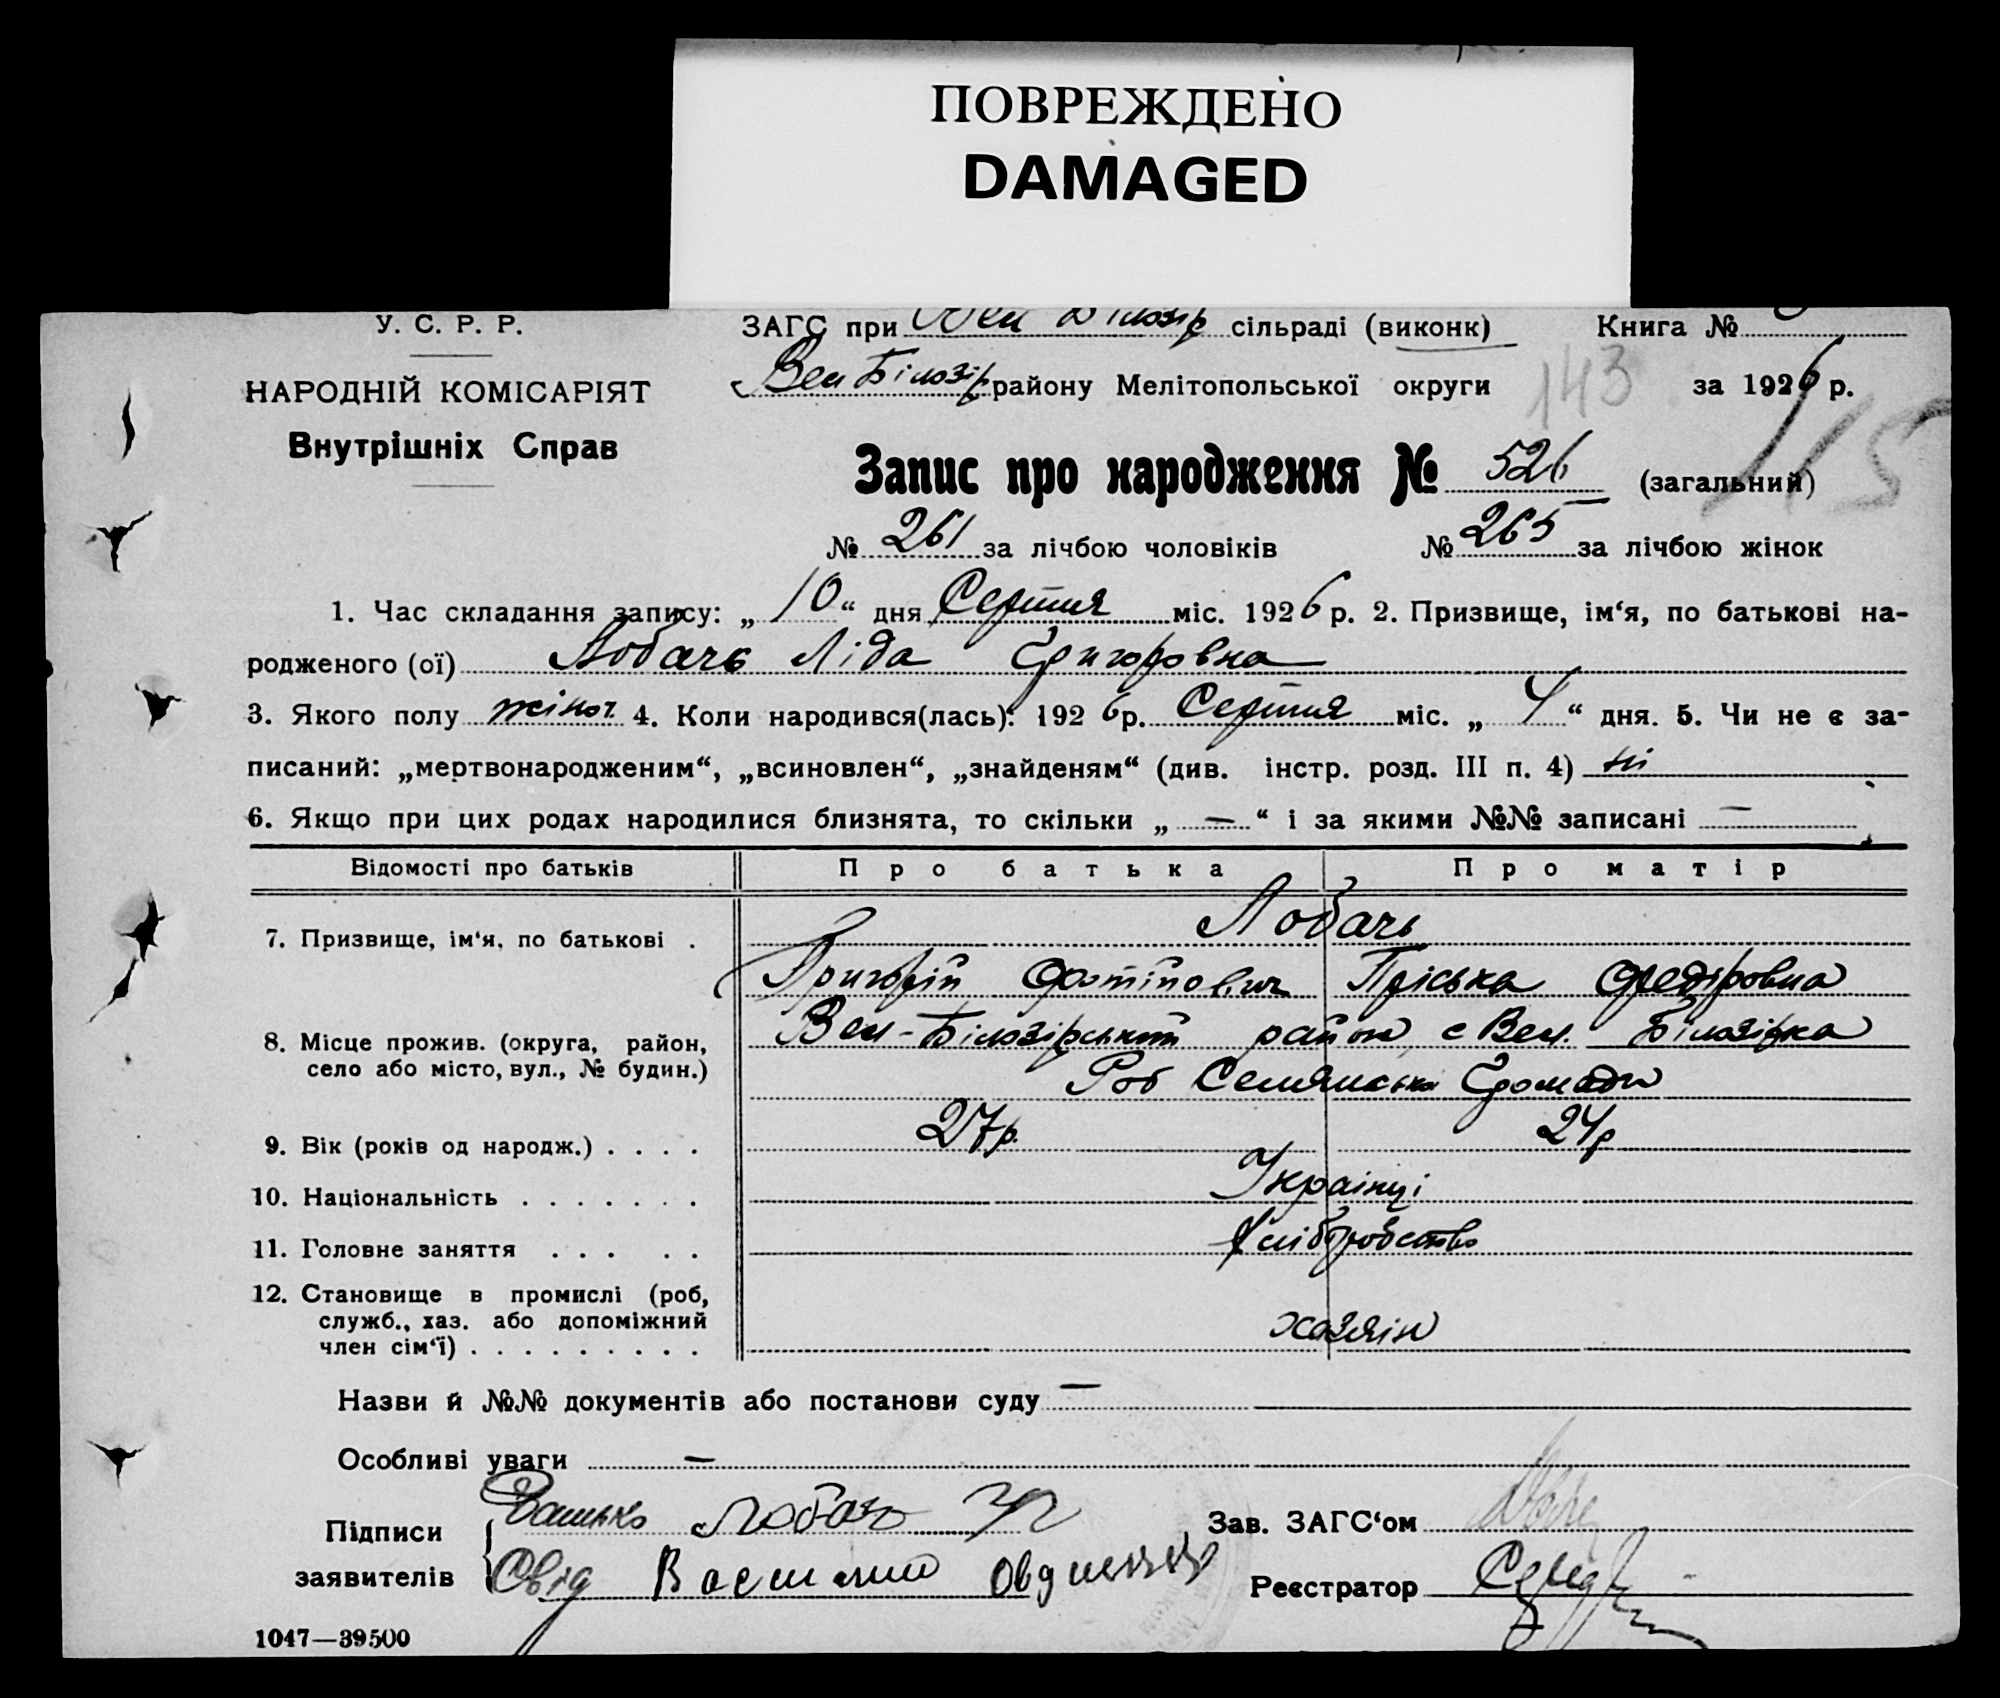 ПОВРЕЖДЕНО
DAMAGED
У. С. Р. Р.
ЗАГС при Вел Білозір сільраді (виконк) Книга №
НАРОДНІЙ КОМІСАРІЯТ
Вел Білозір району Мелітопольської округи 143 за 1926 р.
Внутрішніх Справ
115
Запис про народження № 526 (загальний)
№ 261 за лічбою чоловіків № 265 за лічбою жінок
1. Час складання запису: „10“ дня Серпня міс. 1926 р. 2. Призвище, ім‘я, по батькові на-
родженого (ої) Лобачь Ліда Григоровна
3. Якого полу жіноч. 4. Коли народився(лась): 1926 р. Серпня міс. „4“ дня. 5. Чи не є за-
писаний: „мертвонародженим“, „всиновлен“, „знайденям“ (див. інстр. розд. III п. 4) ні
6. Якщо при цих родах народилися близнята, то скільки „—“ і за якими №№ записані —
Відомості про батьків Про батька Про матір
7. Призвище, ім‘я, по батькові . Лобачь
Григорій Пріська Федіровна
8. Місце прожив. (округа, район, село або місто, вул., № будин.) Вел-Білозірський район с Вел. Білозірка
Громади
9. Вік (років од народж.) . . . . 27р. 24р
10. Національність . . . . . . . Українці
11. Головне заняття . . . . . Хліборобство
12. Становище в промислі (роб,
служб., хаз. або допоміжний
член сім‘ї) . . . . . . . . . хазяїн
Назви й №№ документів або постанови суду —
Особливі уваги —
Підписи Батько Лобач Зав. ЗАГС‘ом
заявителів Свід Василий Реєстратор
1047—39500